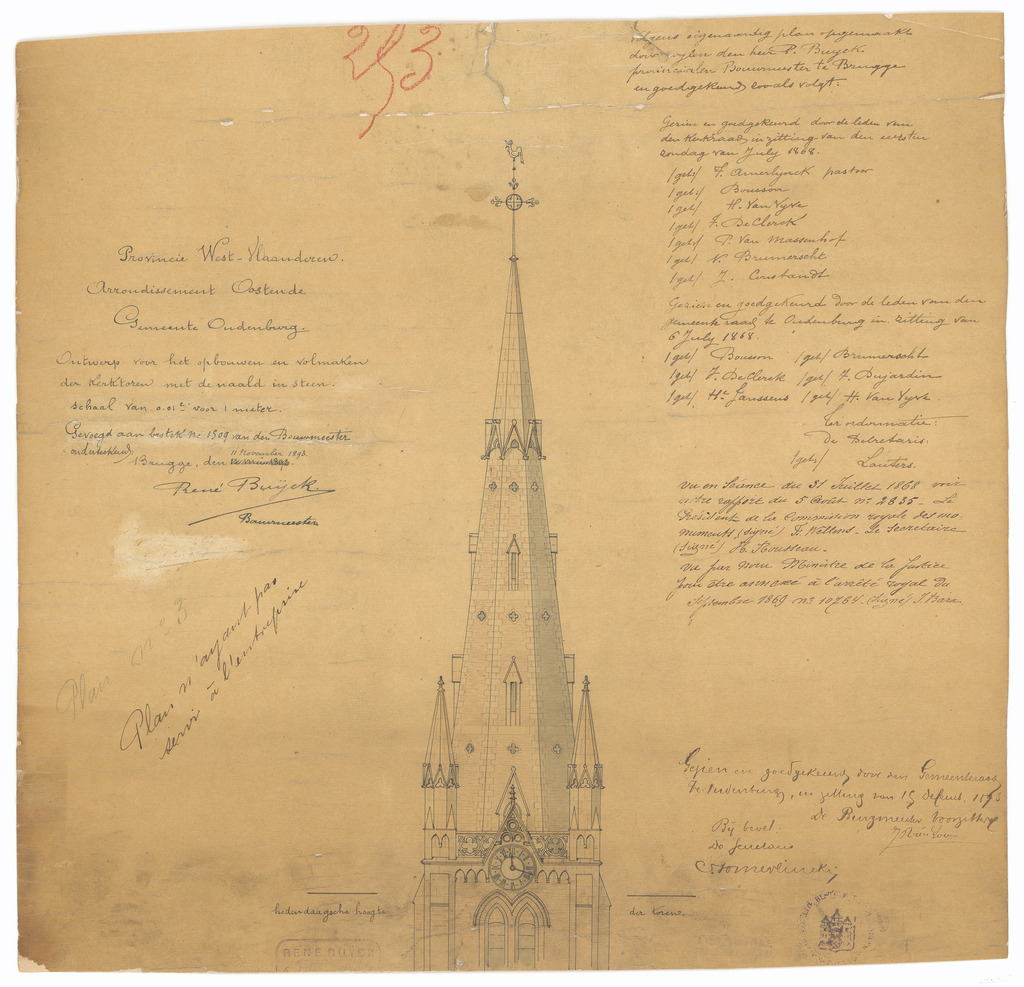 253
volgens eigenaardig plan opgemaakt
door wylen den heer P. Buyck
provincialen Bouwmeester te Brugge
en goedgekeurd zooals volgt.
Gezien en goedgekeurd door de leden van
den Kerkraad in zitting van den eersten
zondag van July 1868.
(get) F. Amerlynck pastoor
(get) Bousson
(get) H. Van Vyve
(get) F. DeClerck
(get) P. Van Massenhof
(get) V. Brumerscht
(get) J. Constandt
Gezien en goedgekeurd door de leden van den
gemeenteraad te Oudenburg in zitting van
6 July 1868.
(get) Bousson (get) Brumerscht
(get) F. DeClerck (get) F. Dujardin
(get) Hte Janssens (get) H. Van Vyve
Ter ordonnatie:
De Secretaris:
(get) Lauters.
Vu en séance du 31 Juillet 1868 voir
notre rapport du 5 Août no 2835. Le
Président de la Commission royale des mo
numents (signé) F. Wellens. Le secrétaire
(signé) H. Rousseau.
Vu par nous Ministre de la Justice
pour être annexé à l'arrêté royal du
Septembre 1869 no 10764. (signé) J. Bara
Provincie West-Vlaanderen.
Arrondissement Oostende
Gemeente Oudenburg.
Ontwerp voor het opbouwen en volmaken
der kerktoren met de naald in steen.
schaal van 0.01c voor 1 meter.
Gevoegd aan bestek no 1509 van den Bouwmeester
onderteekend
Brugge, den 11 November 1893.
René Buÿck
Bouwmeester
Plan no 3
Plan n'ayant pas
servi à l'entreprise
Gezien en goedgekeurd door den Gemeenteraad
te Oudenburg, in zitting van 15
De Burgmeester Voorzitter
Bij bevel:
De secretaris
hedendaagsche hoogte
der torens
RENE BUYCK